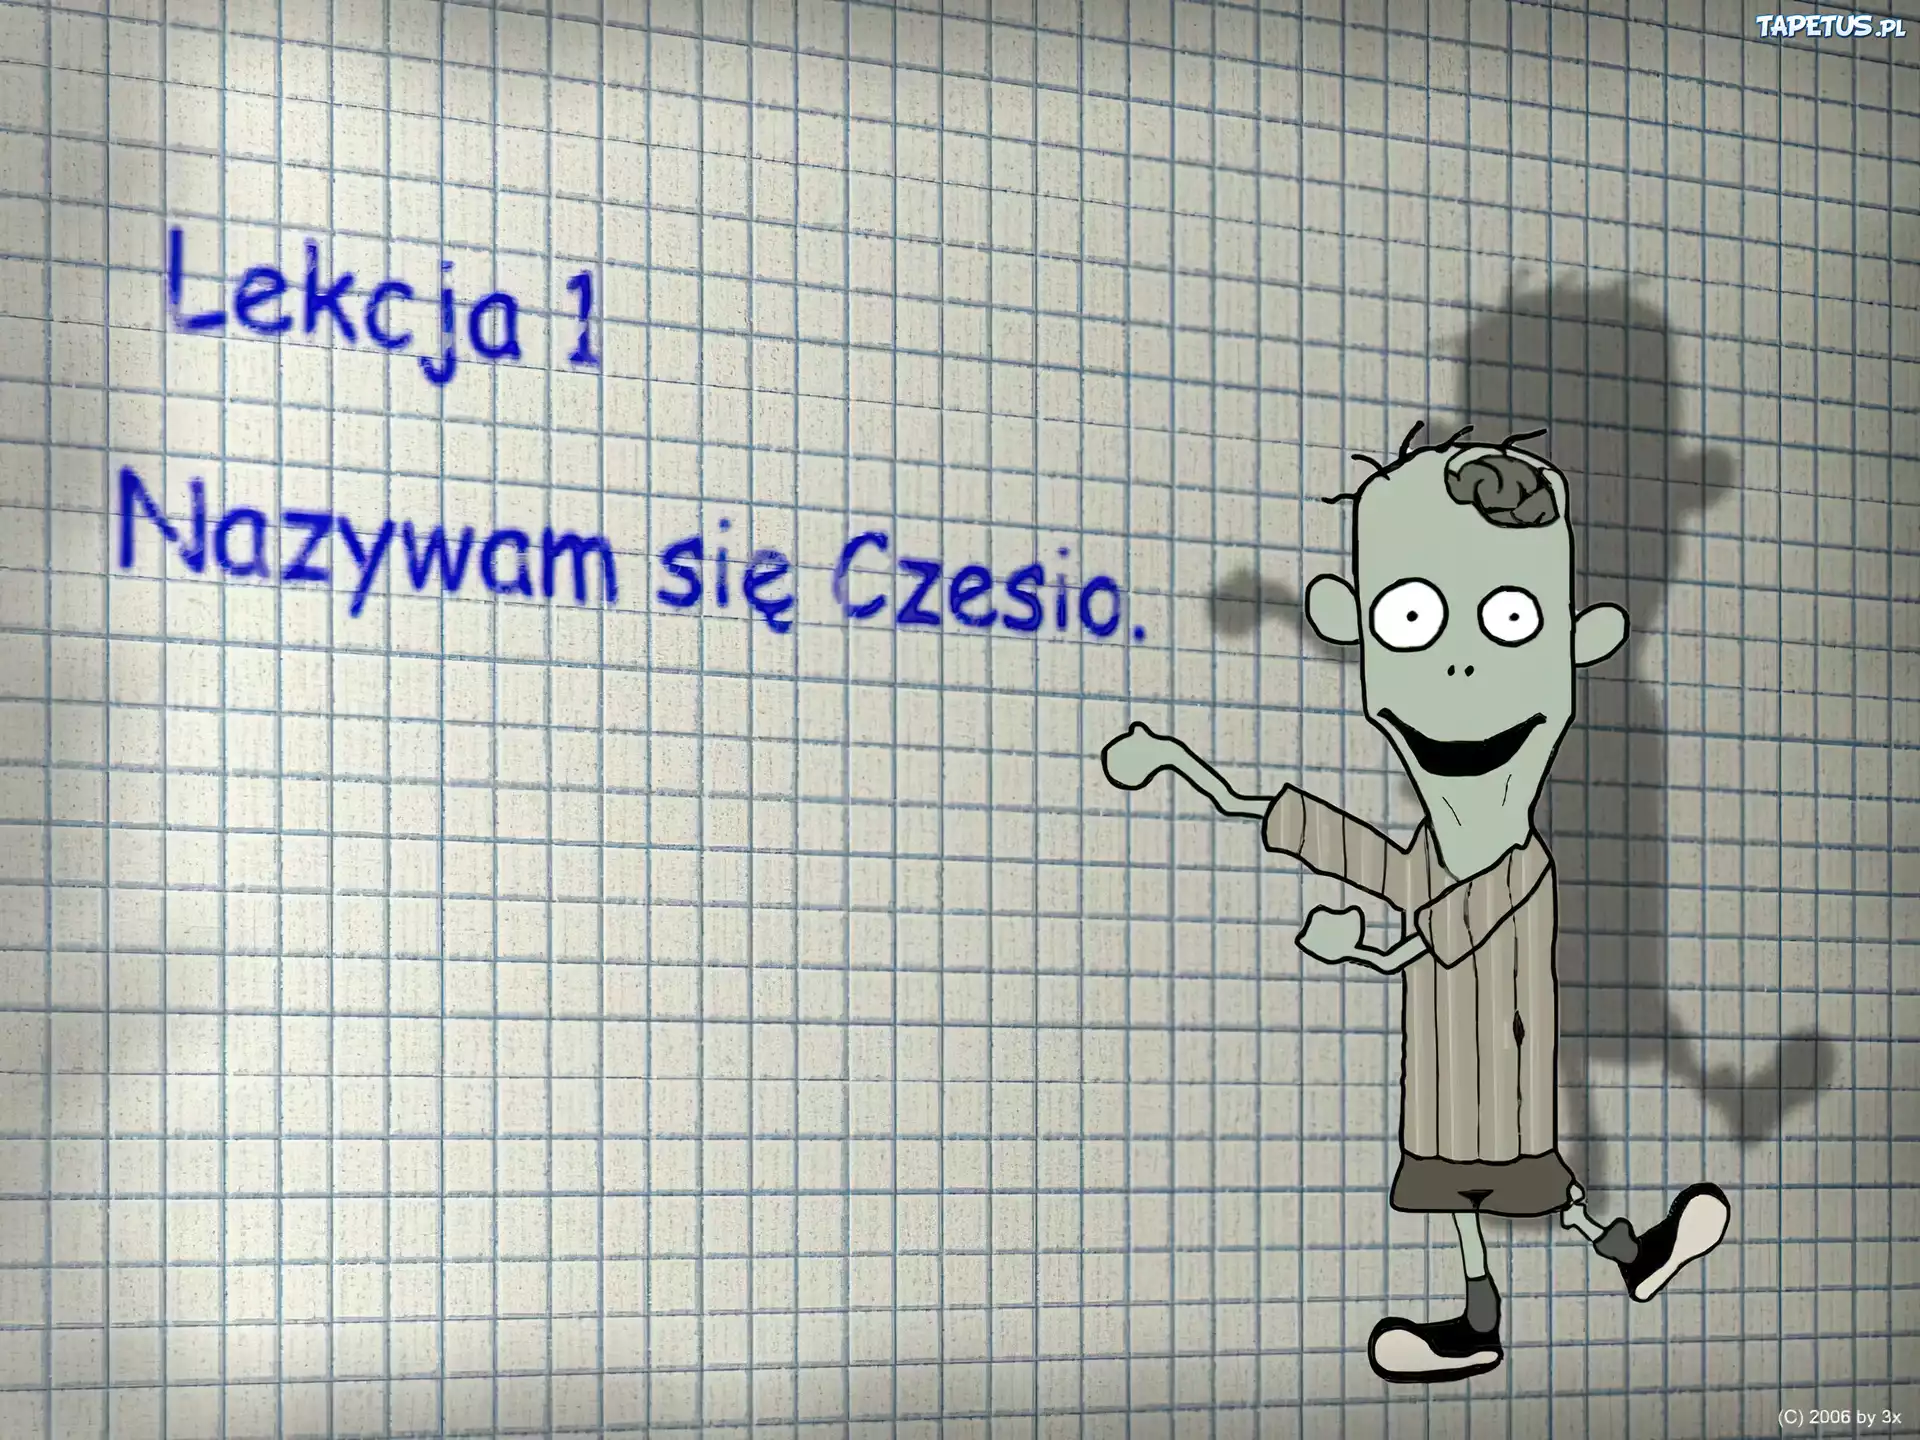 TAPETUS.PL
Lekcja 1
Nazywam się Czesio.
(C) 2006 by 3x